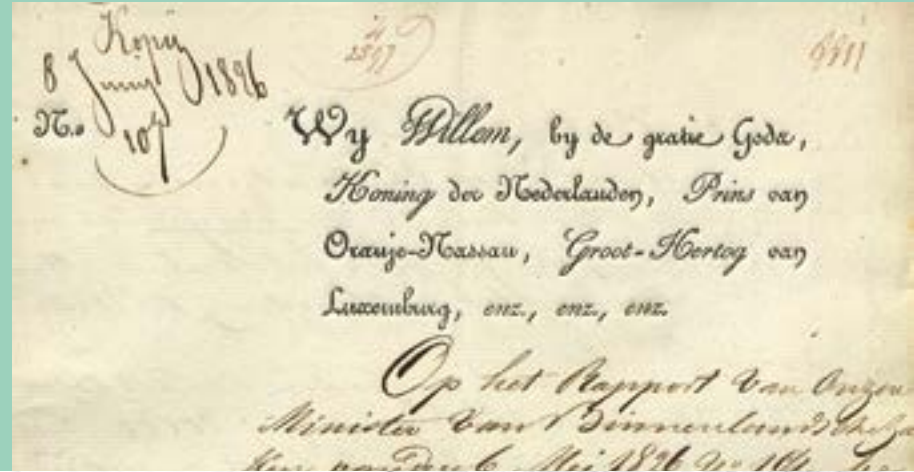 Kopij
8 Junij 1826
N.o 107
Wy Willem, by de gratie Gods,
Koning der Nederlanden, Prins van
Oranje-Nassau, Groot-Hertog van
Luxemburg, enz., enz., enz.
Op het Rapport van Onzen
Minister van Binnenlandsche Za
ken van den 6 Mei 1826 No